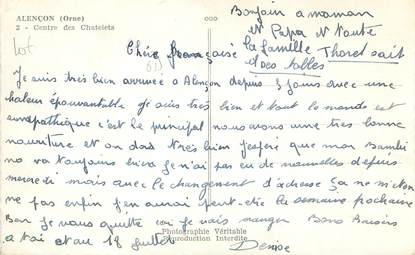 ALENÇON (Orne)
2 - Centre des Chatelets
Bonjour a maman
et Papa et toute
la famille
et des
Chère Française
Je suis très bien arrivée a Alençon depuis 3 jours avec une
chaleur épouvantable je suis très bien et tout le monde est
sympathique c'est le principal nous avons une très bonne
nourriture et on dort très bien j'espère que mon Bambi
no va toujours bien je n'ai pas eu de nouvelles depuis
mercredi mais avec le changement d'adresse ça ne m'éton
ne pas enfin j'en aurai peut-etre la semaine prochaine
Bon je vous quitte car je vais manger Bons Baisers
a toi et au 18 juillet Denise
Photographie Véritable
Reproduction Interdite